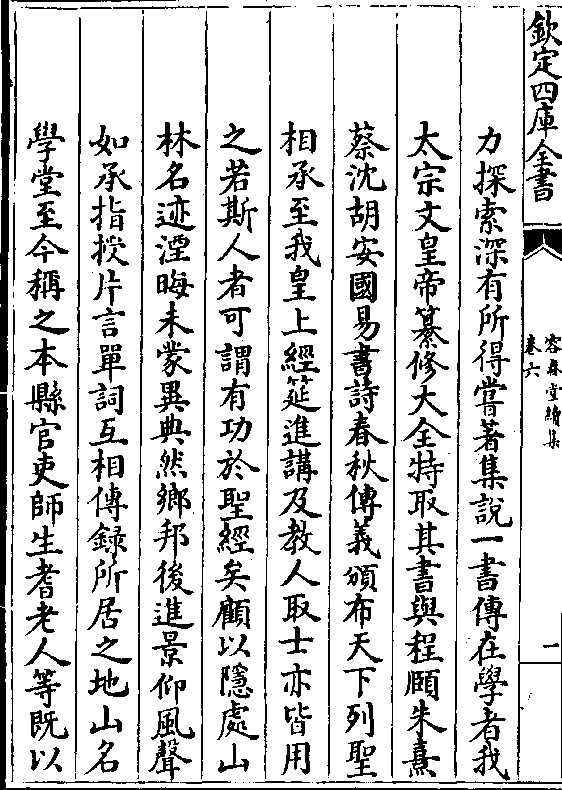 欽定四庫全書
容春堂續集
卷六
一
力探索深有所得嘗著集說一書傳在學者我
太宗文皇帝纂修大全特取其書與程頤朱熹
蔡沈胡安國易書詩春秋傳義頒布天下列聖
相承至我皇上經筵進講及教人取士亦皆用
之若斯人者可謂有功於聖經矣顧以隱處山
林名迹湮晦未蒙異典然鄉邦後進景仰風聲
如承指授片言單詞互相傳錄所居之地山名
學堂至今稱之本縣官吏師生耆老人等既以